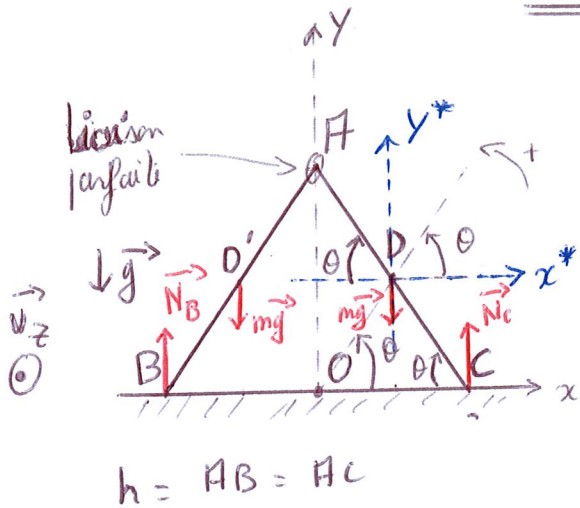 y
A
Liaison
parfaite
y*
+
D'
θ
D
θ
x*
g
N_B
mg
mg
N_C
u_z
B
O
θ
θ
C
x
h = AB = AC